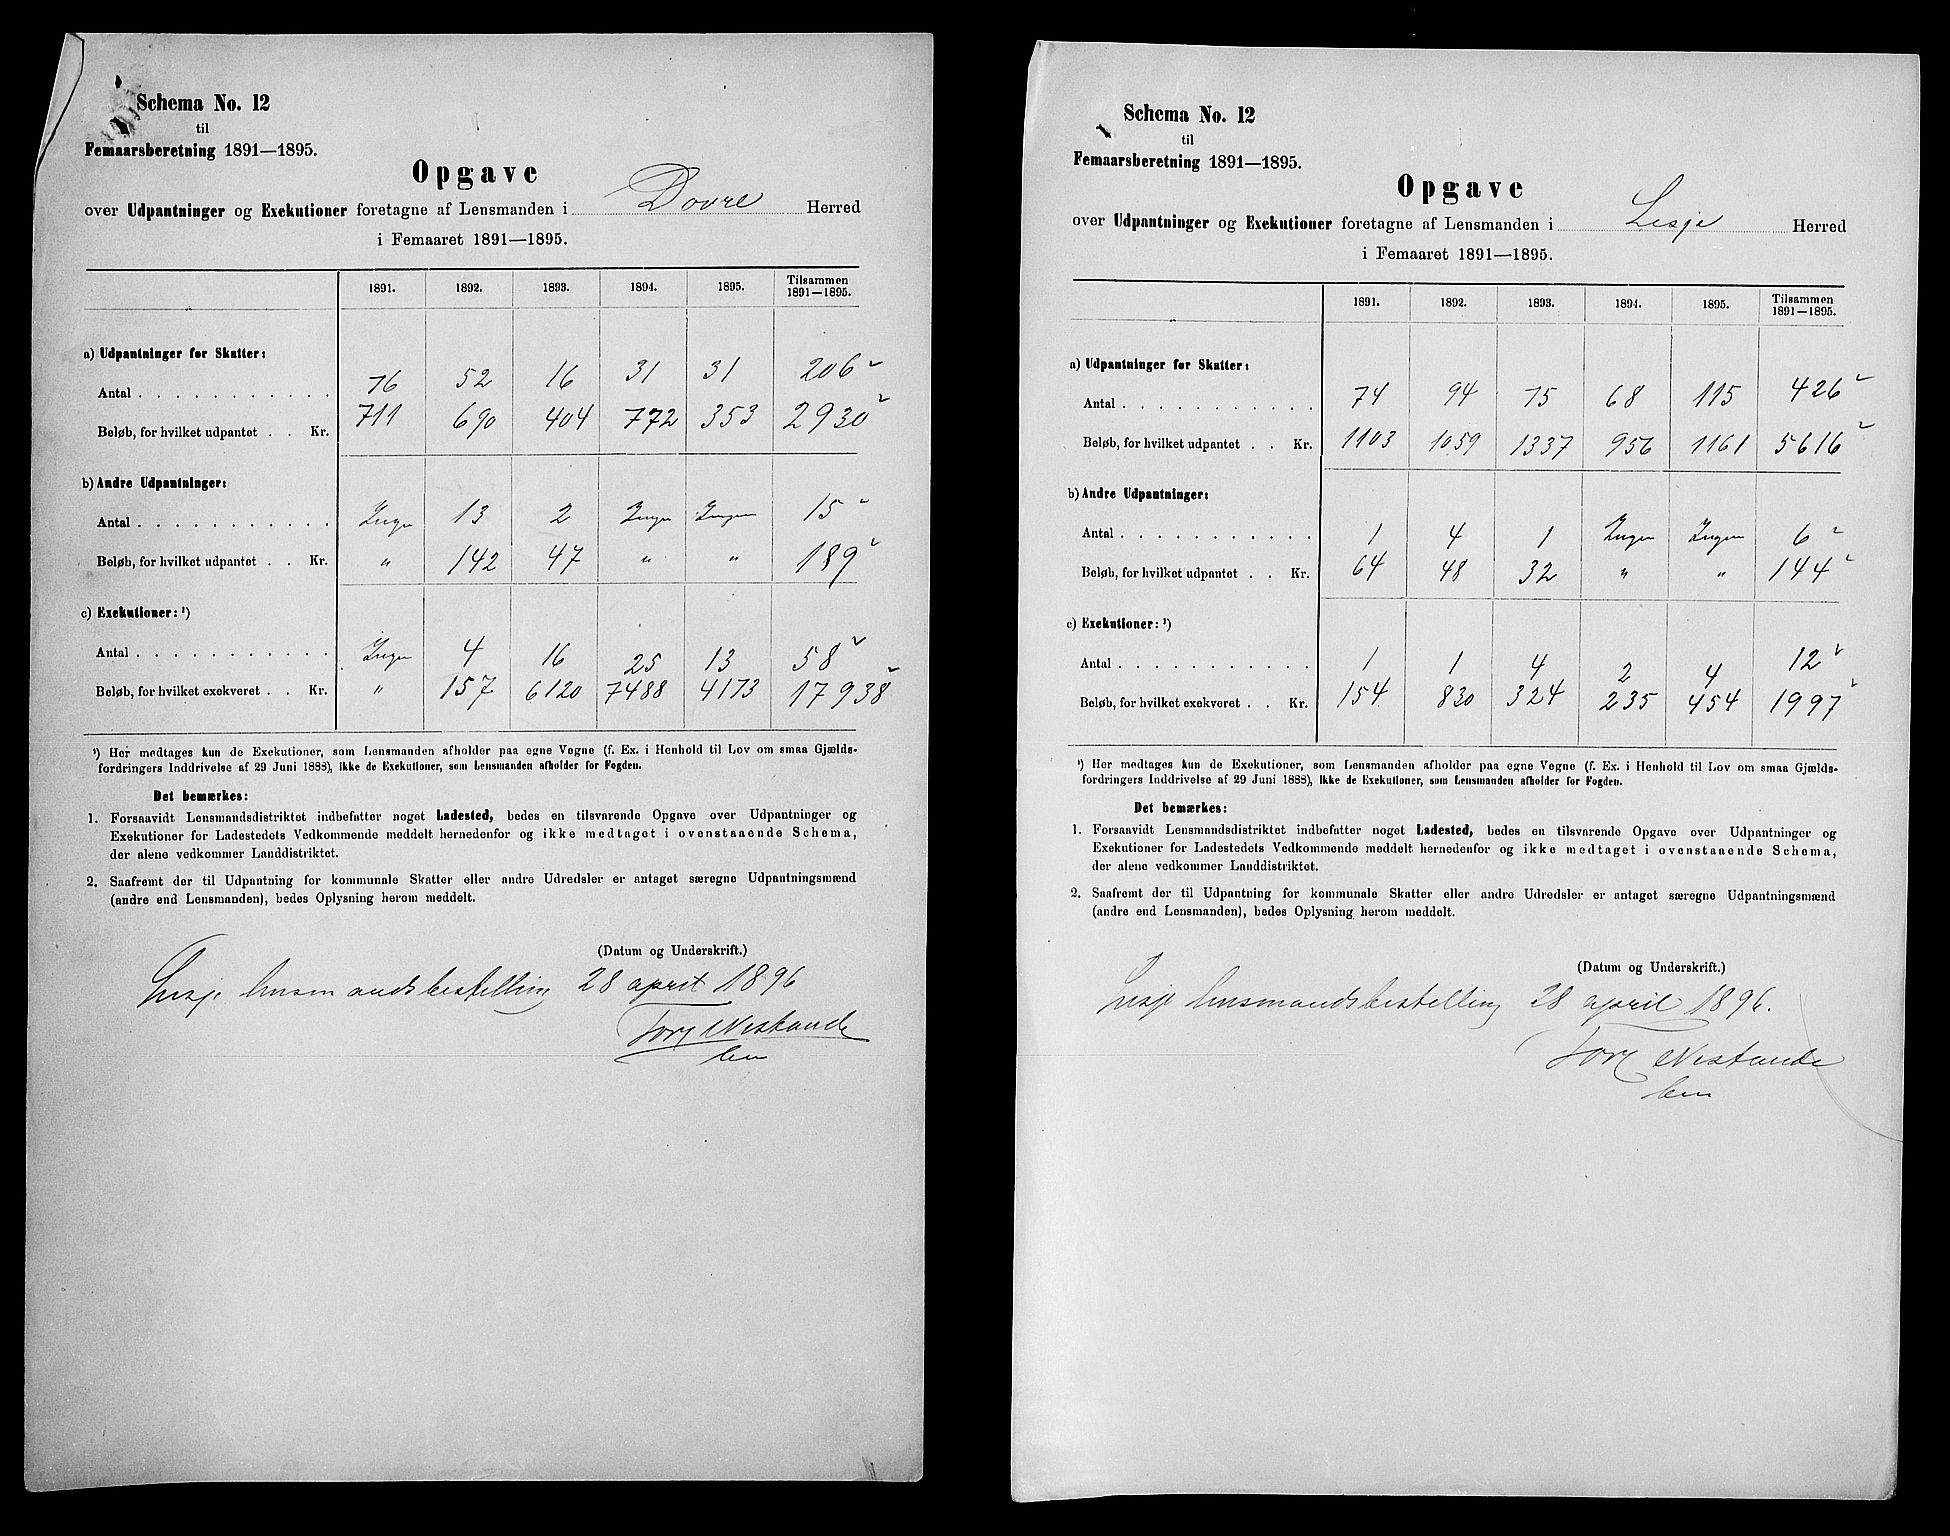 Schema No. 12
til
Femaarsberetning 1891—1895.
Opgave
over Udpantninger og Exekutioner foretagne af Lensmanden i Dovre Herred
i Femaaret 1891—1895.
1891. 1892. 1893. 1894. 1895. Tilsammen 1891—1895.
a) Udpantninger for Skatter:
Antal . . . . . . . . . . . 76 52 16 31 31 206
Beløb, for hvilket udpantet . . Kr. 711 690 404 772 353 2930
b) Andre Udpantninger:
Antal . . . . . . . . . . . Ingen 13 2 Ingen Ingen 15
Beløb, for hvilket udpantet . . Kr. " 142 47 " " 189
c) Exekutioner: ¹)
Antal . . . . . . . . . . . Ingen 4 16 25 13 58
Beløb, for hvilket exekveret . . Kr. " 157 6120 7488 4173 17938
¹) Her medtages kun de Exekutioner, som Lensmanden afholder paa egne Vegne (f. Ex. i Henhold til Lov om smaa Gjælds-
fordringers Inddrivelse af 29 Juni 1888), ikke de Exekutioner, som Lensmanden afholder for Fogden.
Det bemærkes:
1. Forsaavidt Lensmandsdistriktet indbefatter noget Ladested, bedes en tilsvarende Opgave over Udpantninger og
Exekutioner for Ladestedets Vedkommende meddelt hernedenfor og ikke medtaget i ovenstaaende Schema,
der alene vedkommer Landdistriktet.
2. Saafremt der til Udpantning for kommunale Skatter eller andre Udredsler er antaget særegne Udpantningsmænd
(andre end Lensmanden), bedes Oplysning herom meddelt.
(Datum og Underskrift.)
Lesje lensmandsbestilling 28 april 1896
Nestande
Schema No. 12
til
Femaarsberetning 1891—1895.
Opgave
over Udpantninger og Exekutioner foretagne af Lensmanden i Lesje Herred
i Femaaret 1891—1895.
1891. 1892. 1893. 1894. 1895. Tilsammen 1891—1895.
a) Udpantninger for Skatter:
Antal . . . . . . . . . . . 74 94 75 68 115 426
Beløb, for hvilket udpantet . . Kr. 1103 1059 1337 956 1161 5616
b) Andre Udpantninger:
Antal . . . . . . . . . . . 1 4 1 Ingen Ingen 6
Beløb, for hvilket udpantet . . Kr. 64 48 32 " " 144
c) Exekutioner: ¹)
Antal . . . . . . . . . . . 1 1 4 2 4 12
Beløb, for hvilket exekveret . . Kr. 154 830 324 235 454 1997
¹) Her medtages kun de Exekutioner, som Lensmanden afholder paa egne Vegne (f. Ex. i Henhold til Lov om smaa Gjælds-
fordringers Inddrivelse af 29 Juni 1888), ikke de Exekutioner, som Lensmanden afholder for Fogden.
Det bemærkes:
1. Forsaavidt Lensmandsdistriktet indbefatter noget Ladested, bedes en tilsvarende Opgave over Udpantninger og
Exekutioner for Ladestedets Vedkommende meddelt hernedenfor og ikke medtaget i ovenstaaende Schema,
der alene vedkommer Landdistriktet.
2. Saafremt der til Udpantning for kommunale Skatter eller andre Udredsler er antaget særegne Udpantningsmænd
(andre end Lensmanden), bedes Oplysning herom meddelt.
(Datum og Underskrift.)
Lesje lensmandsbestilling 28 april 1896.
Nestande